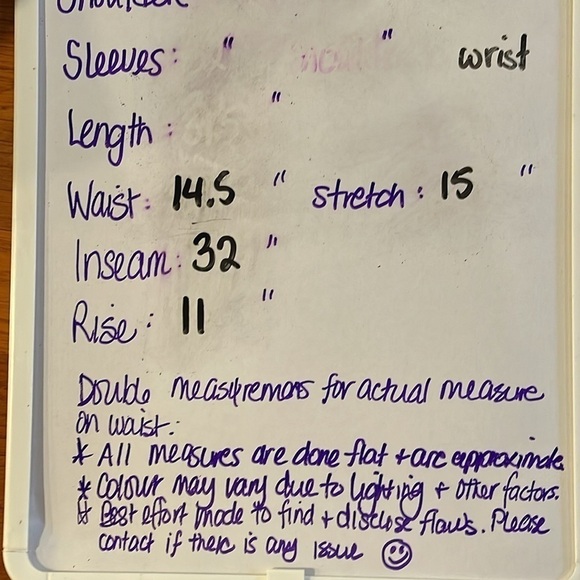 Shoulder
Sleeves: " " wrist
Length: "
Waist: 14.5 " stretch: 15 "
Inseam: 32 "
Rise: 11 "
Double measurements for actual measure
on waist.
* All measures are done flat + are approximate
* Colour may vary due to lighting + other factors.
* Best effort made to find + disclose flaws. Please
contact if there is any issue ☺